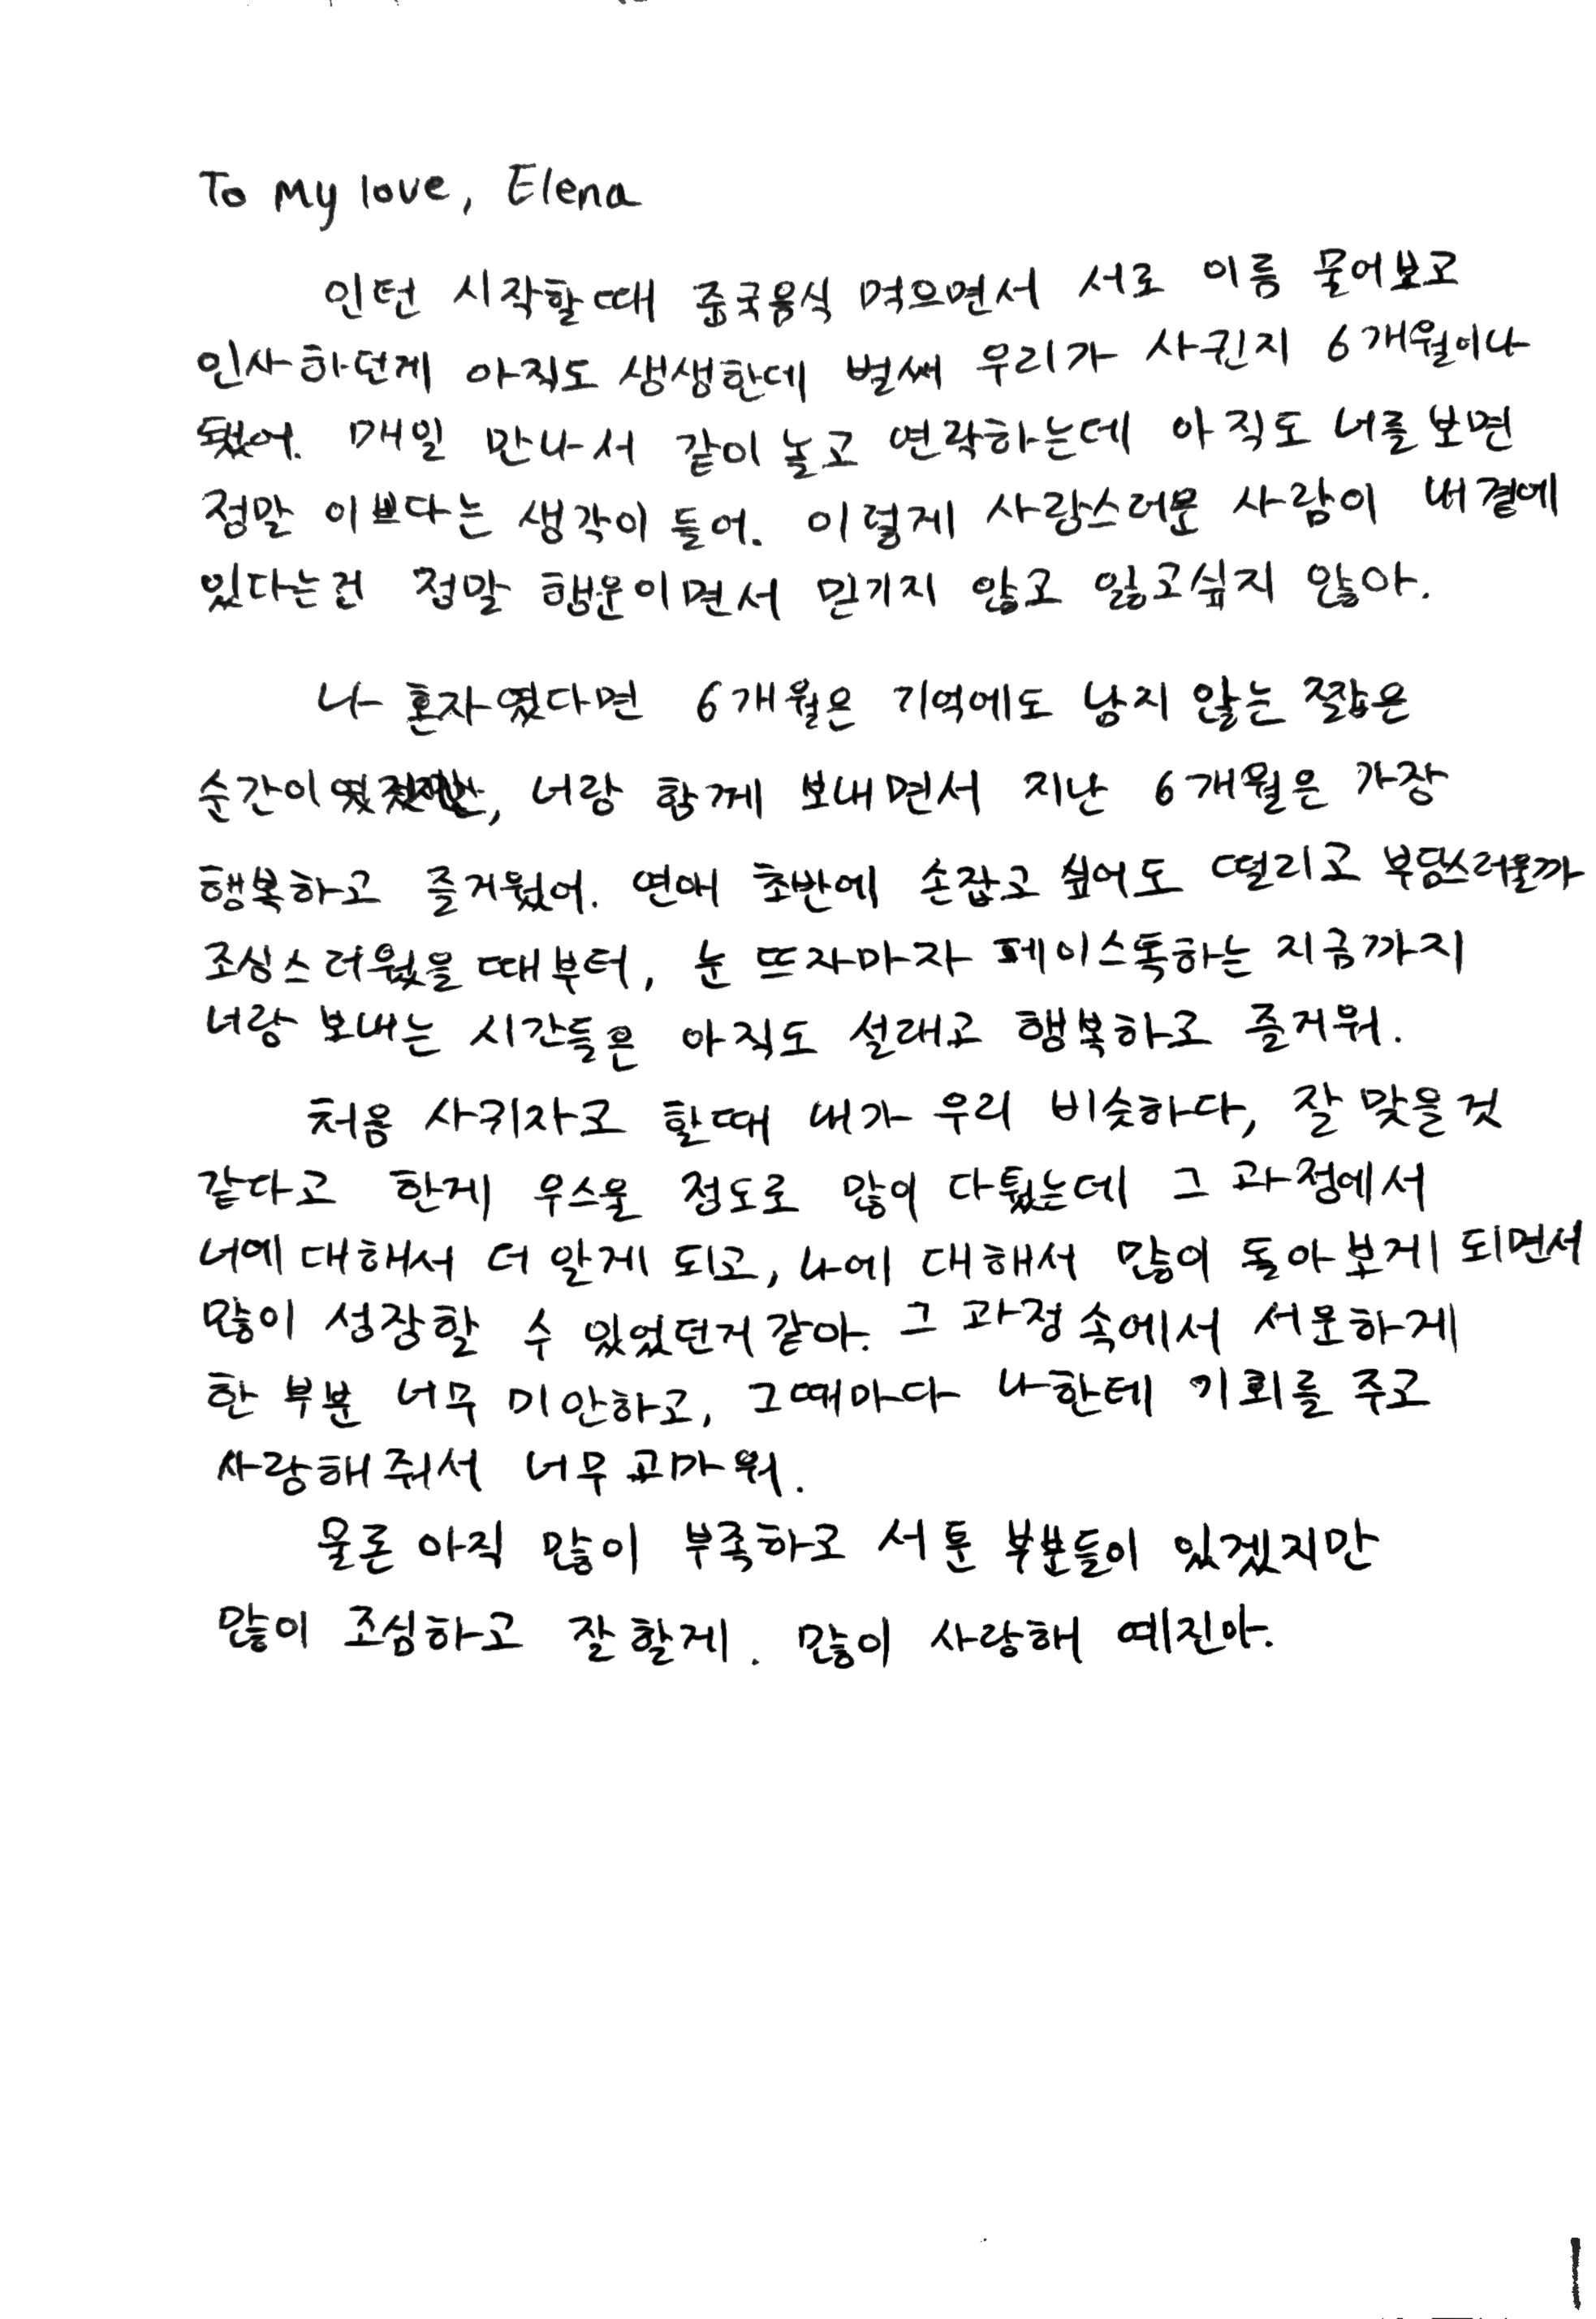 To My love, Elena
인턴 시작할때 중국음식 먹으면서 서로 이름 물어보고
인사하던게 아직도 생생한데 벌써 우리가 사귄지 6개월이나
됐어. 매일 만나서 같이 놀고 연락하는데 아직도 너를 보면
정말 이쁘다는 생각이 들어. 이렇게 사랑스러운 사람이 내 곁에
있다는건 정말 행운이면서 믿기지 않고 잃고싶지 않아.
나 혼자였다면 6개월은 기억에도 남지 않는 짧은
순간이였겠지만, 너랑 함께 보내면서 지난 6개월은 가장
행복하고 즐거웠어. 연애 초반에 손잡고 싶어도 떨리고 부담스러울까
조심스러웠을 때부터, 눈 뜨자마자 페이스톡하는 지금까지
너랑 보내는 시간들은 아직도 설래고 행복하고 즐거워.
처음 사귀자고 할때 내가 우리 비슷하다, 잘 맞을것
같다고 한게 우스울 정도로 많이 다퉜는데 그 과정에서
너에 대해서 더 알게 되고, 나에 대해서 많이 돌아보게 되면서
많이 성장할 수 있었던거 같아. 그 과정 속에서 서운하게
한 부분 너무 미안하고, 그때마다 나한테 기회를 주고
사랑해줘서 너무 고마워.
물론 아직 많이 부족하고 서툰 부분들이 있겠지만
많이 조심하고 잘할게. 많이 사랑해 예진아.